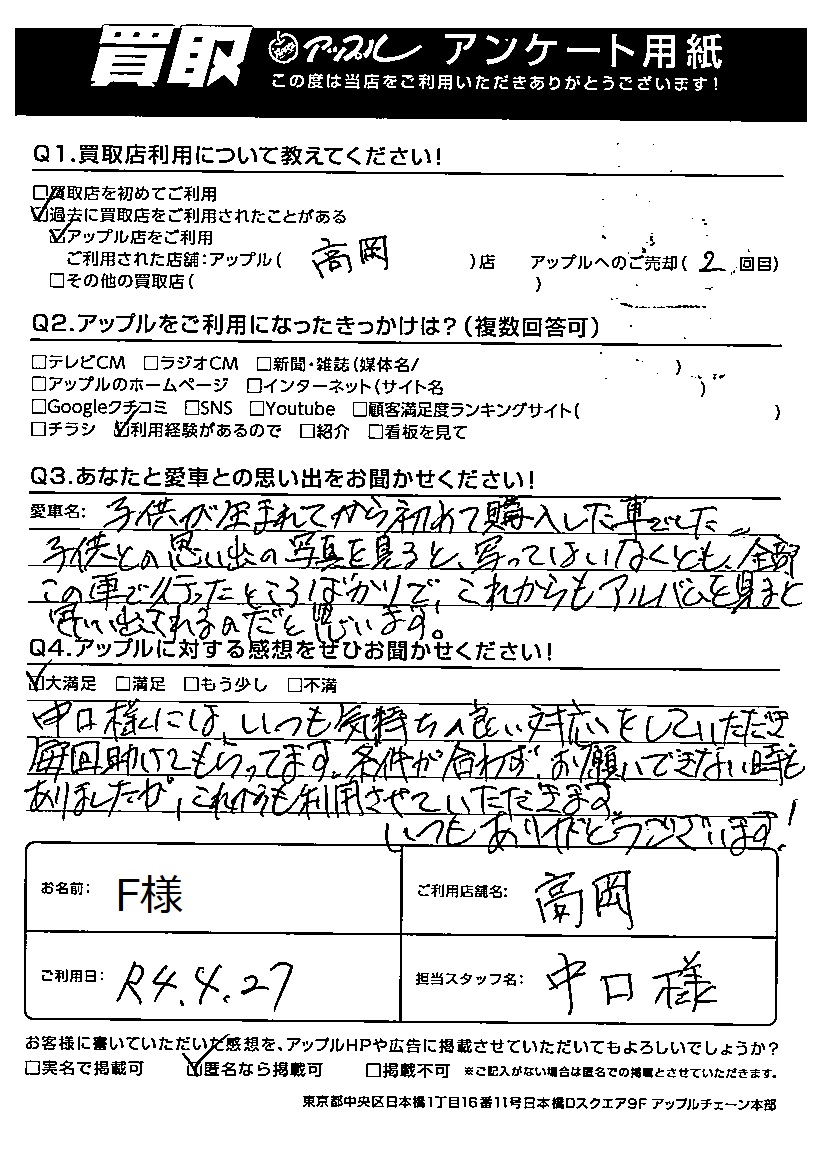 買取 アップル アンケート用紙
この度は当店をご利用いただきありがとうございます！
Q1.買取店利用について教えてください！
□買取店を初めてご利用
☑過去に買取店をご利用されたことがある
☑アップル店をご利用
ご利用された店舗：アップル（ 高岡 ）店 アップルへのご売却（ 2 回目）
□その他の買取店（ ）
Q2.アップルをご利用になったきっかけは？（複数回答可）
□テレビCM □ラジオCM □新聞・雑誌（媒体名/ ）
□アップルのホームページ □インターネット（サイト名 ）
□Googleクチコミ □SNS □Youtube □顧客満足度ランキングサイト（ ）
□チラシ ☑利用経験があるので □紹介 □看板を見て
Q3.あなたと愛車との思い出をお聞かせください！
愛車名： 子供が生まれてから初めて購入した車でした。
子供との思い出の写真を見ると、写ってはいなくとも、全部
この車で行ったところばかりで、これからもアルバムを見ると
思い出されるのだと思います。
Q4.アップルに対する感想をぜひお聞かせください！
☑大満足 □満足 □もう少し □不満
中口様には、いつも気持ちの良い対応をしていただき
毎回助けてもらってます。条件が合わず、お願いできない時も
ありましたが、これからも利用させていただきます
いつもありがとうございます！
お名前： F様 ご利用店舗名： 高岡
ご利用日： R4.4.27 担当スタッフ名： 中口様
お客様に書いていただいた感想を、アップルHPや広告に掲載させていただいてもよろしいでしょうか？
□実名で掲載可 ☑匿名なら掲載可 □掲載不可 ※ご記入がない場合は匿名での掲載とさせていただきます。
東京都中央区日本橋1丁目16番11号日本橋Dスクエア9F アップルチェーン本部